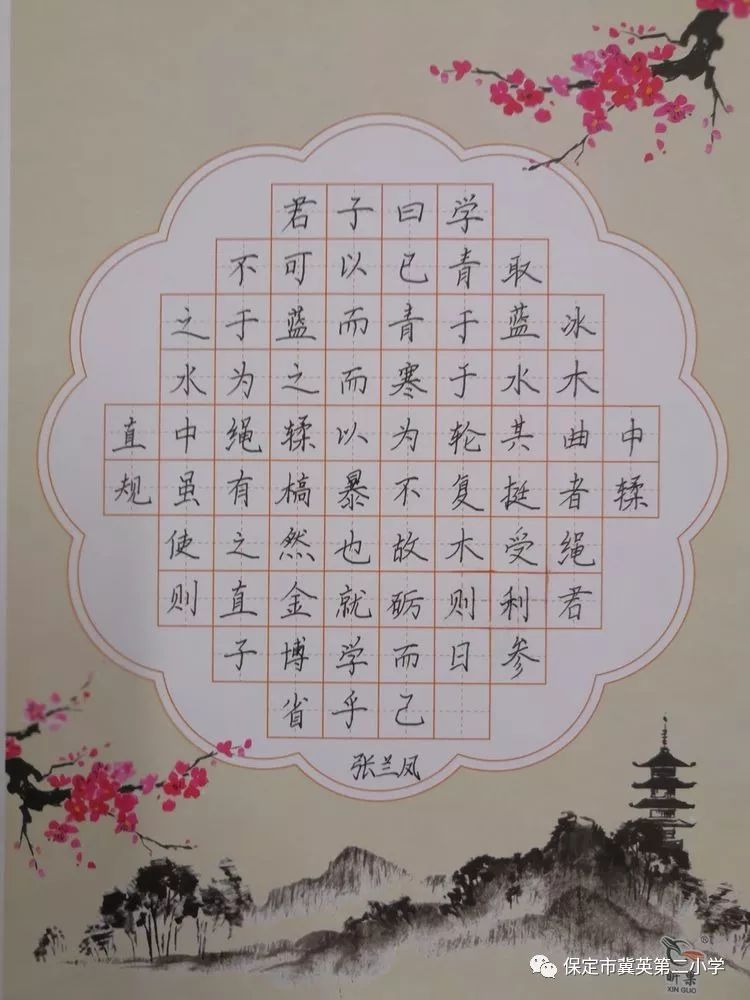 君子曰学
不可以已青取
之于蓝而青于蓝冰
水为之而寒于水木
直中绳輮以为轮其曲中
规虽有槁暴不复挺者輮
使之然也故木受绳
则直金就砺则利君
子博学而日参
省乎己
张兰凤
昕果
XIN GUO
保定市冀英第二小学